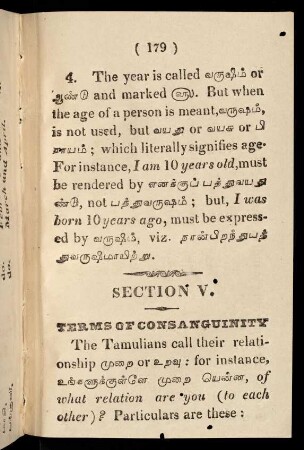 ( 179 )
4. The year is called வருஷம் or
ஆண்டு and marked ௵. But when
the age of a person is meant, வருஷம்,
is not used, but வயது or வயசு or பி
ராயம்; which literally signifies age.
For instance, I am 10 years old, must
be rendered by எனக்குப் பத்துவயது
ண்டு, not பத்துவருஷம்; but, I was
born 10 years ago, must be express-
ed by வருஷம், viz. நான்பிறந்துபத்
துவருஷமாயிற்று.
SECTION V.
TERMS OF CONSANGUINITY
The Tamulians call their relati-
onship முறை or உறவு: for instance,
உங்களுக்குள்ளே முறை யென்ன, of
what relation are you (to each
other)? Particulars are these:
March and April.
do.
do.